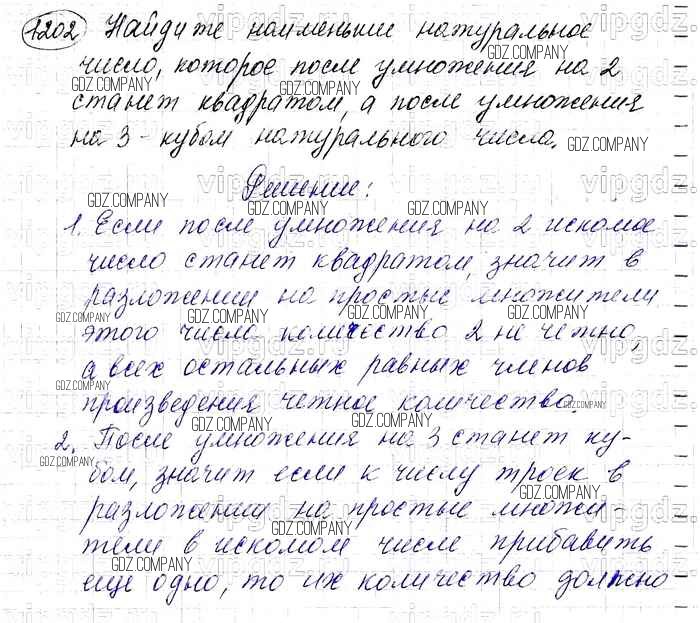 1202 Найдите наименьшее натуральное
число, которое после умножения на 2
станет квадратом, а после умножения
на 3 - кубом натурального числа.
Решение:
1. Если после умножения на 2 искомое
число станет квадратом, значит в
разложении на простые множители
этого числа количество 2 не четно,
а всех остальных равных членов
произведения четное количество.
2. После умножения на 3 станет ку-
бом, значит если к числу троек в
разложении на простые множи-
тели в искомом числе прибавить
еще одно, то их количество должно